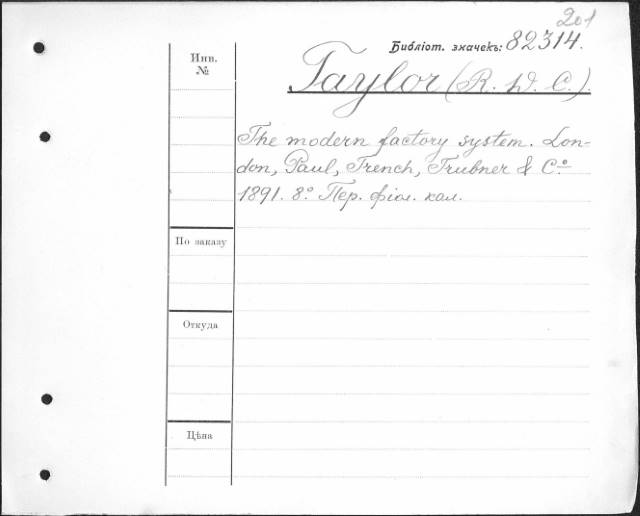 201
Библіот. значекъ: 82314.
Инв.
№
Taylor (R. W. C.).
The modern factory system. Lon-
don, Paul, Trench, Trubner & Cº
1891. 8º Пер. фіол. кал.
По заказу
Откуда
Цѣна